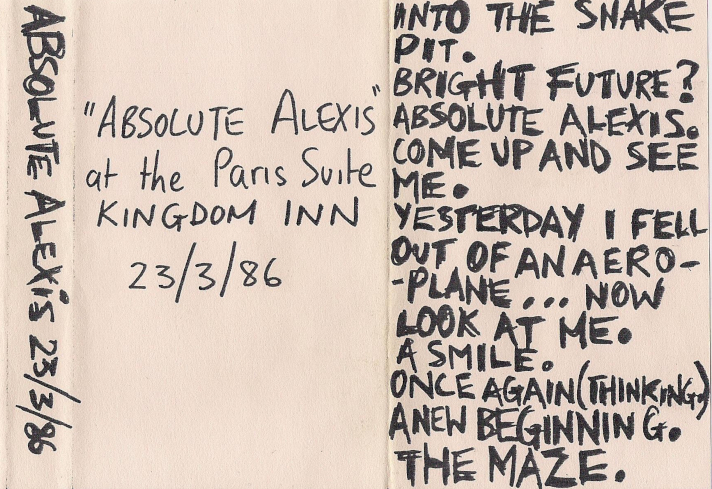 ABSOLUTE ALEXIS 23/3/86
"ABSOLUTE ALEXIS"
at the Paris Suite
KINGDOM INN
23/3/86
INTO THE SNAKE
PIT.
BRIGHT FUTURE?
ABSOLUTE ALEXIS.
COME UP AND SEE
ME.
YESTERDAY I FELL
OUT OF AN AERO-
-PLANE... NOW
LOOK AT ME.
A SMILE.
ONCE AGAIN (THINKING.)
A NEW BEGINNING.
THE MAZE.